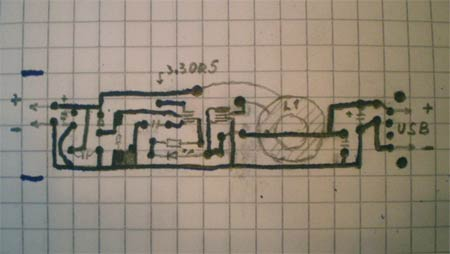 3.30R5
+ + L1 + +
- USB
-